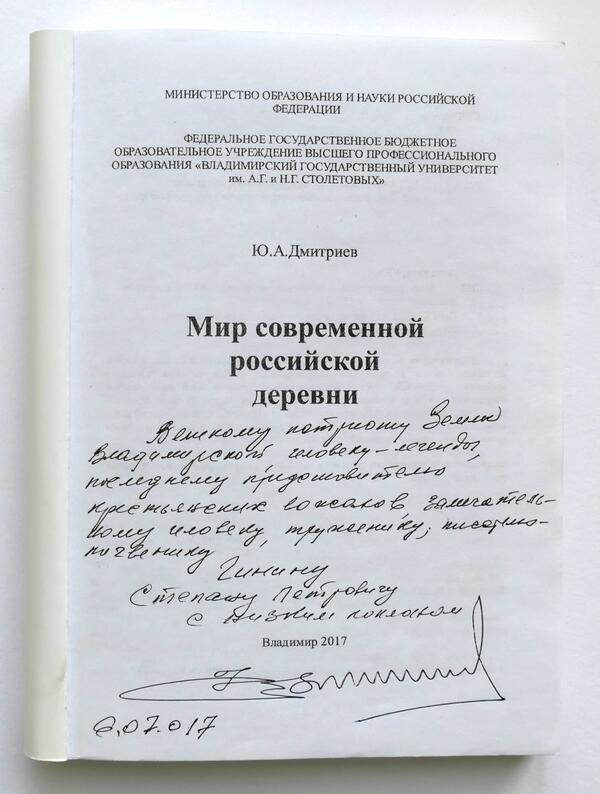 МИНИСТЕРСТВО ОБРАЗОВАНИЯ И НАУКИ РОССИЙСКОЙ
ФЕДЕРАЦИИ
ФЕДЕРАЛЬНОЕ ГОСУДАРСТВЕННОЕ БЮДЖЕТНОЕ
ОБРАЗОВАТЕЛЬНОЕ УЧРЕЖДЕНИЕ ВЫСШЕГО ПРОФЕССИОНАЛЬНОГО
ОБРАЗОВАНИЯ «ВЛАДИМИРСКИЙ ГОСУДАРСТВЕННЫЙ УНИВЕРСИТЕТ
им. А.Г. и Н.Г. СТОЛЕТОВЫХ»
Ю.А.Дмитриев
Мир современной
российской
деревни
Великому патриоту Земли
Владимирской человеку-легенде,
последнему
крестьянских вожаков, замечатель-
ному человеку, труженику, писателю-
почвеннику
Гинину
Степану Петровичу
с низким поклоном
Владимир 2017
6.07.017